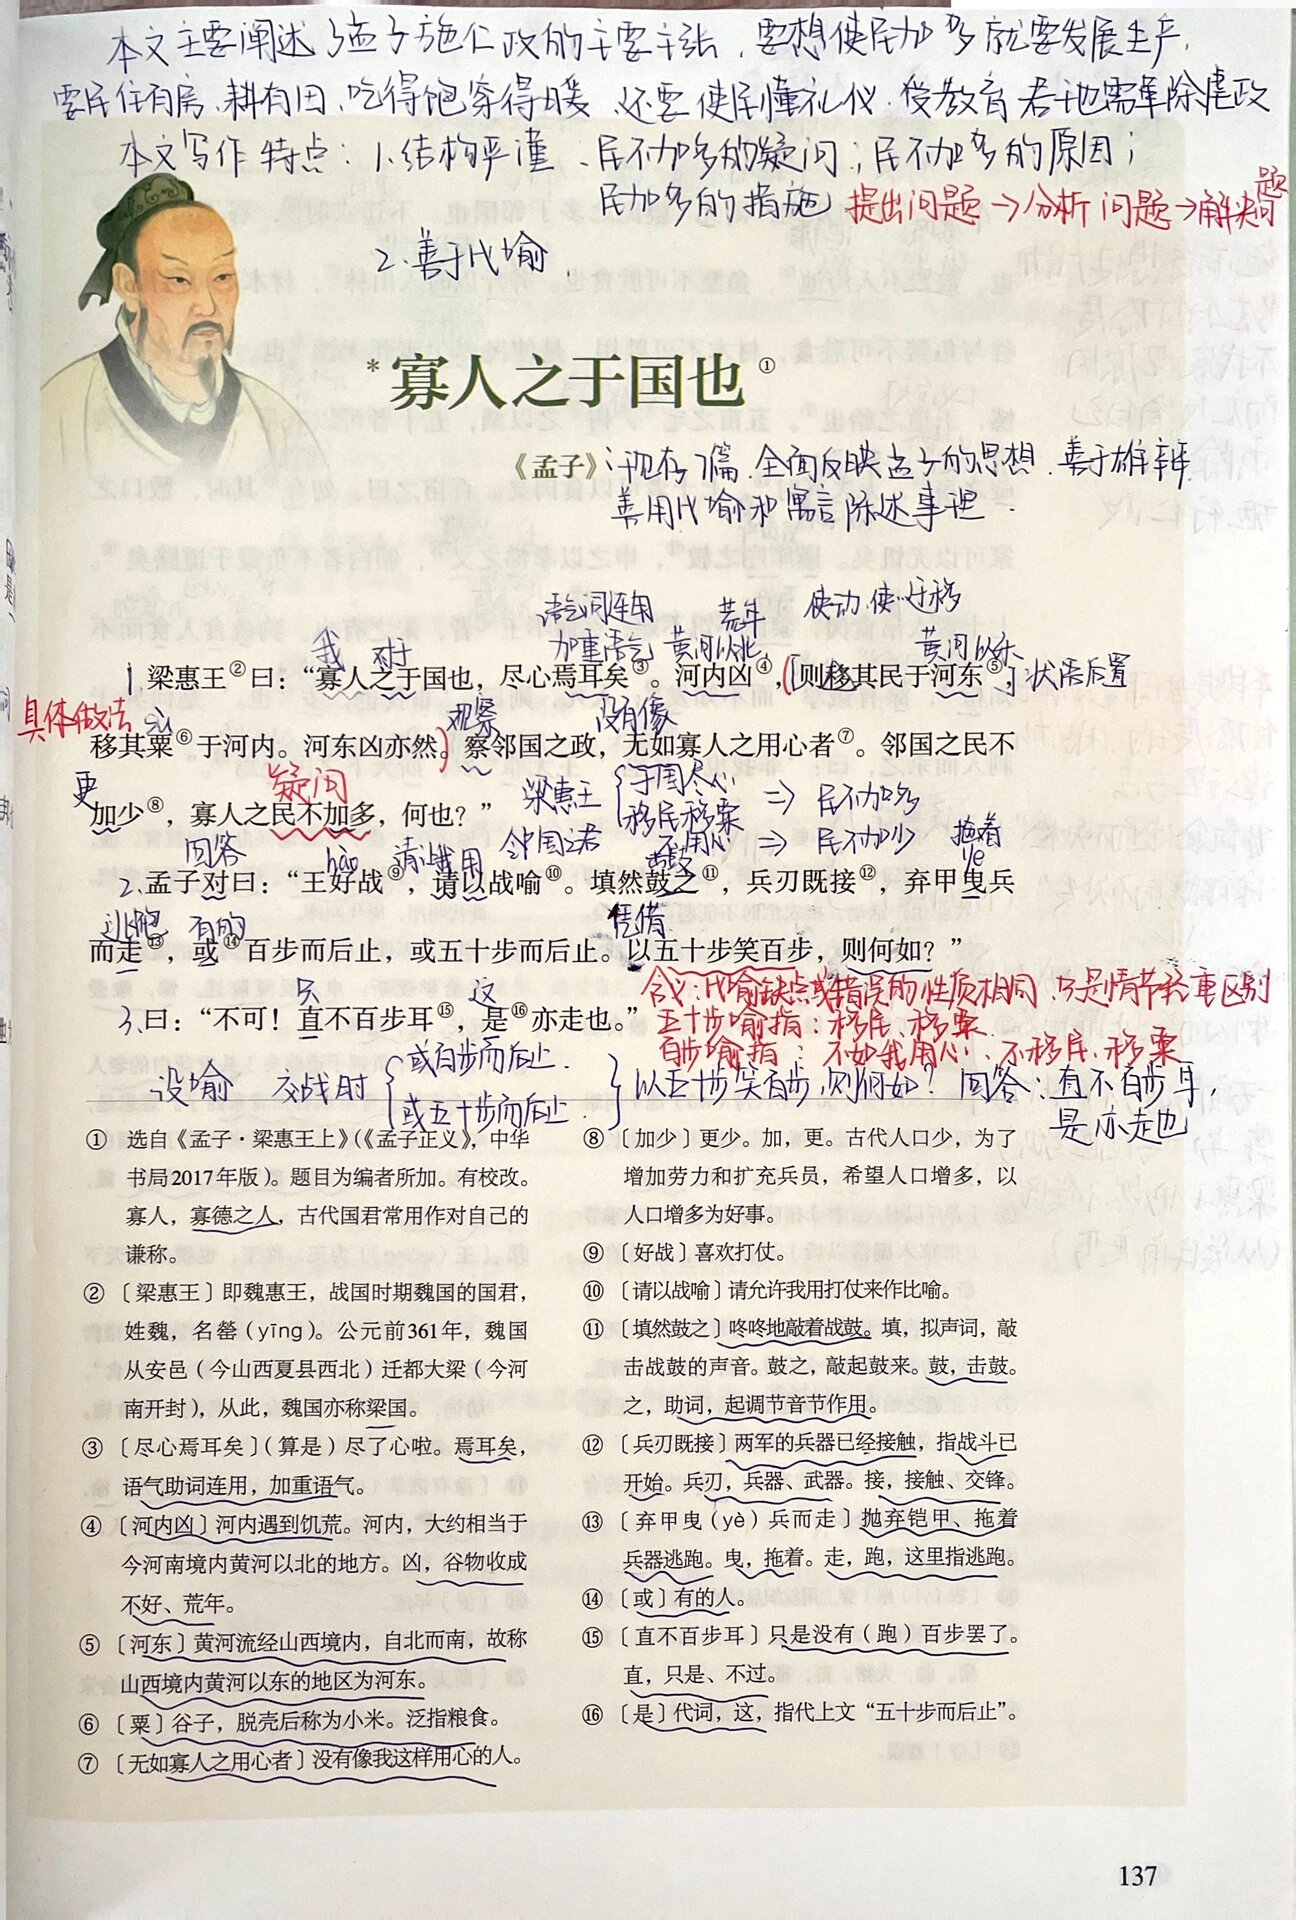 本文主要阐述了孟子施仁政的主要主张，要想使民加多就要发展生产，
要民住有房、耕有田、吃得饱穿得暖，还要使民懂礼仪、受教育，君也需革除虐政
本文写作特点：1、结构严谨、民不加多的疑问；民不加多的原因；
民加多的措施
提出问题→分析问题→解决问题
2、善于比喻
*寡人之于国也①
《孟子》
现存7篇、全面反映孟子的思想、善于雄辩
善用比喻和寓言陈述事理
语气词连用 荒年 使动，使…迁移
我 对于 加重语气 黄河以北 黄河以东
1 梁惠王②曰：“寡人之于国也，尽心焉耳矣③。河内凶④，则移其民于河东⑤，
状语后置
具体做法 sù 观察 没有像
移其粟⑥于河内。河东凶亦然。察邻国之政，无如寡人之用心者⑦。邻国之民不
更 疑问
加少⑧，寡人之民不加多，何也？”
梁惠王 {于国尽心 移民移粟 ⇒ 民不加多
邻国之君 不用心 ⇒ 民不加少
回答 hào 请让我用 击鼓 拖着 yè
2、孟子对曰：“王好战⑨，请以战喻⑩。填然鼓之⑪，兵刃既接⑫，弃甲曳兵
逃跑 有的 凭借
而走⑬，或⑭百步而后止，或五十步而后止。以五十步笑百步，则何如？”
只 这
3、曰：“不可！直不百步耳⑮，是⑯亦走也。”
含义：比喻缺点或错误的性质相同，只是情节轻重区别
五十步喻指：移民、移粟
百步喻指：不如我用心、不移民、移粟
设喻 交战时 {或百步而后止 或五十步而后止} 以五十步笑百步，则何如？ 回答：直不百步耳，
是亦走也
① 选自《孟子·梁惠王上》（《孟子正义》，中华
书局2017年版）。题目为编者所加。有校改。
寡人，寡德之人，古代国君常用作对自己的
谦称。
②〔梁惠王〕即魏惠王，战国时期魏国的国君，
姓魏，名罃（yīng）。公元前361年，魏国
从安邑（今山西夏县西北）迁都大梁（今河
南开封），从此，魏国亦称梁国。
③〔尽心焉耳矣〕（算是）尽了心啦。焉耳矣，
语气助词连用，加重语气。
④〔河内凶〕河内遇到饥荒。河内，大约相当于
今河南境内黄河以北的地方。凶，谷物收成
不好、荒年。
⑤〔河东〕黄河流经山西境内，自北而南，故称
山西境内黄河以东的地区为河东。
⑥〔粟〕谷子，脱壳后称为小米。泛指粮食。
⑦〔无如寡人之用心者〕没有像我这样用心的人。
⑧〔加少〕更少。加，更。古代人口少，为了
增加劳力和扩充兵员，希望人口增多，以
人口增多为好事。
⑨〔好战〕喜欢打仗。
⑩〔请以战喻〕请允许我用打仗来作比喻。
⑪〔填然鼓之〕咚咚地敲着战鼓。填，拟声词，敲
击战鼓的声音。鼓之，敲起鼓来。鼓，击鼓。
之，助词，起调节音节作用。
⑫〔兵刃既接〕两军的兵器已经接触，指战斗已
开始。兵刃，兵器、武器。接，接触、交锋。
⑬〔弃甲曳（yè）兵而走〕抛弃铠甲、拖着
兵器逃跑。曳，拖着。走，跑，这里指逃跑。
⑭〔或〕有的人。
⑮〔直不百步耳〕只是没有（跑）百步罢了。
直，只是、不过。
⑯〔是〕代词，这，指代上文“五十步而后止”。
137